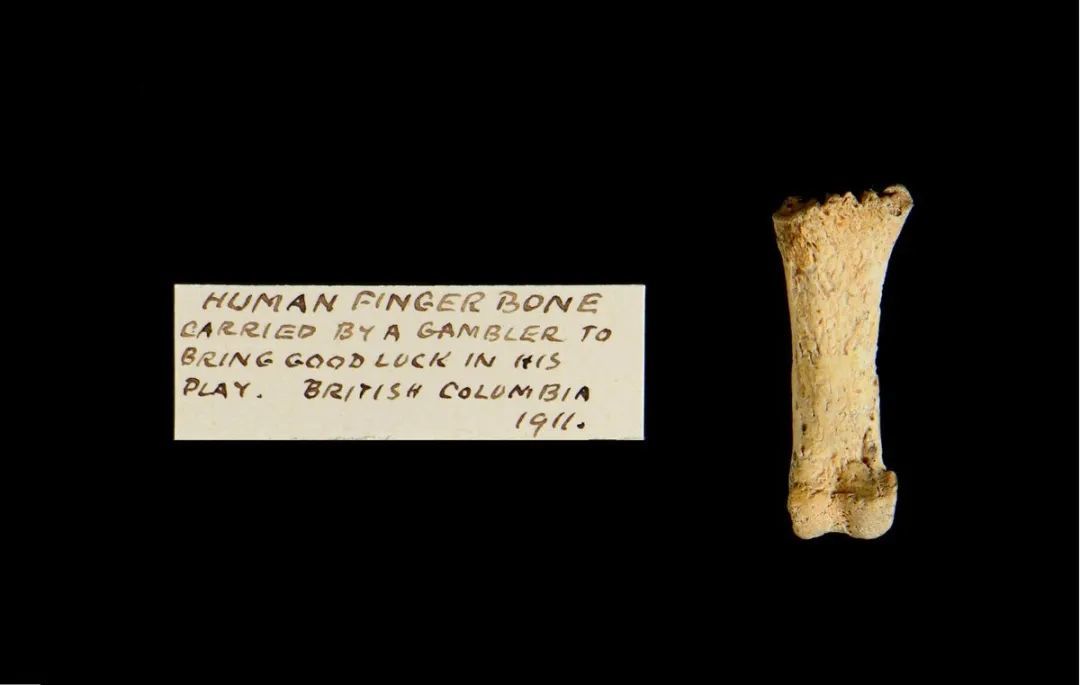 HUMAN FINGER BONE
CARRIED BY A GAMBLER TO
BRING GOOD LUCK IN HIS
PLAY. BRITISH COLUMBIA
1911.